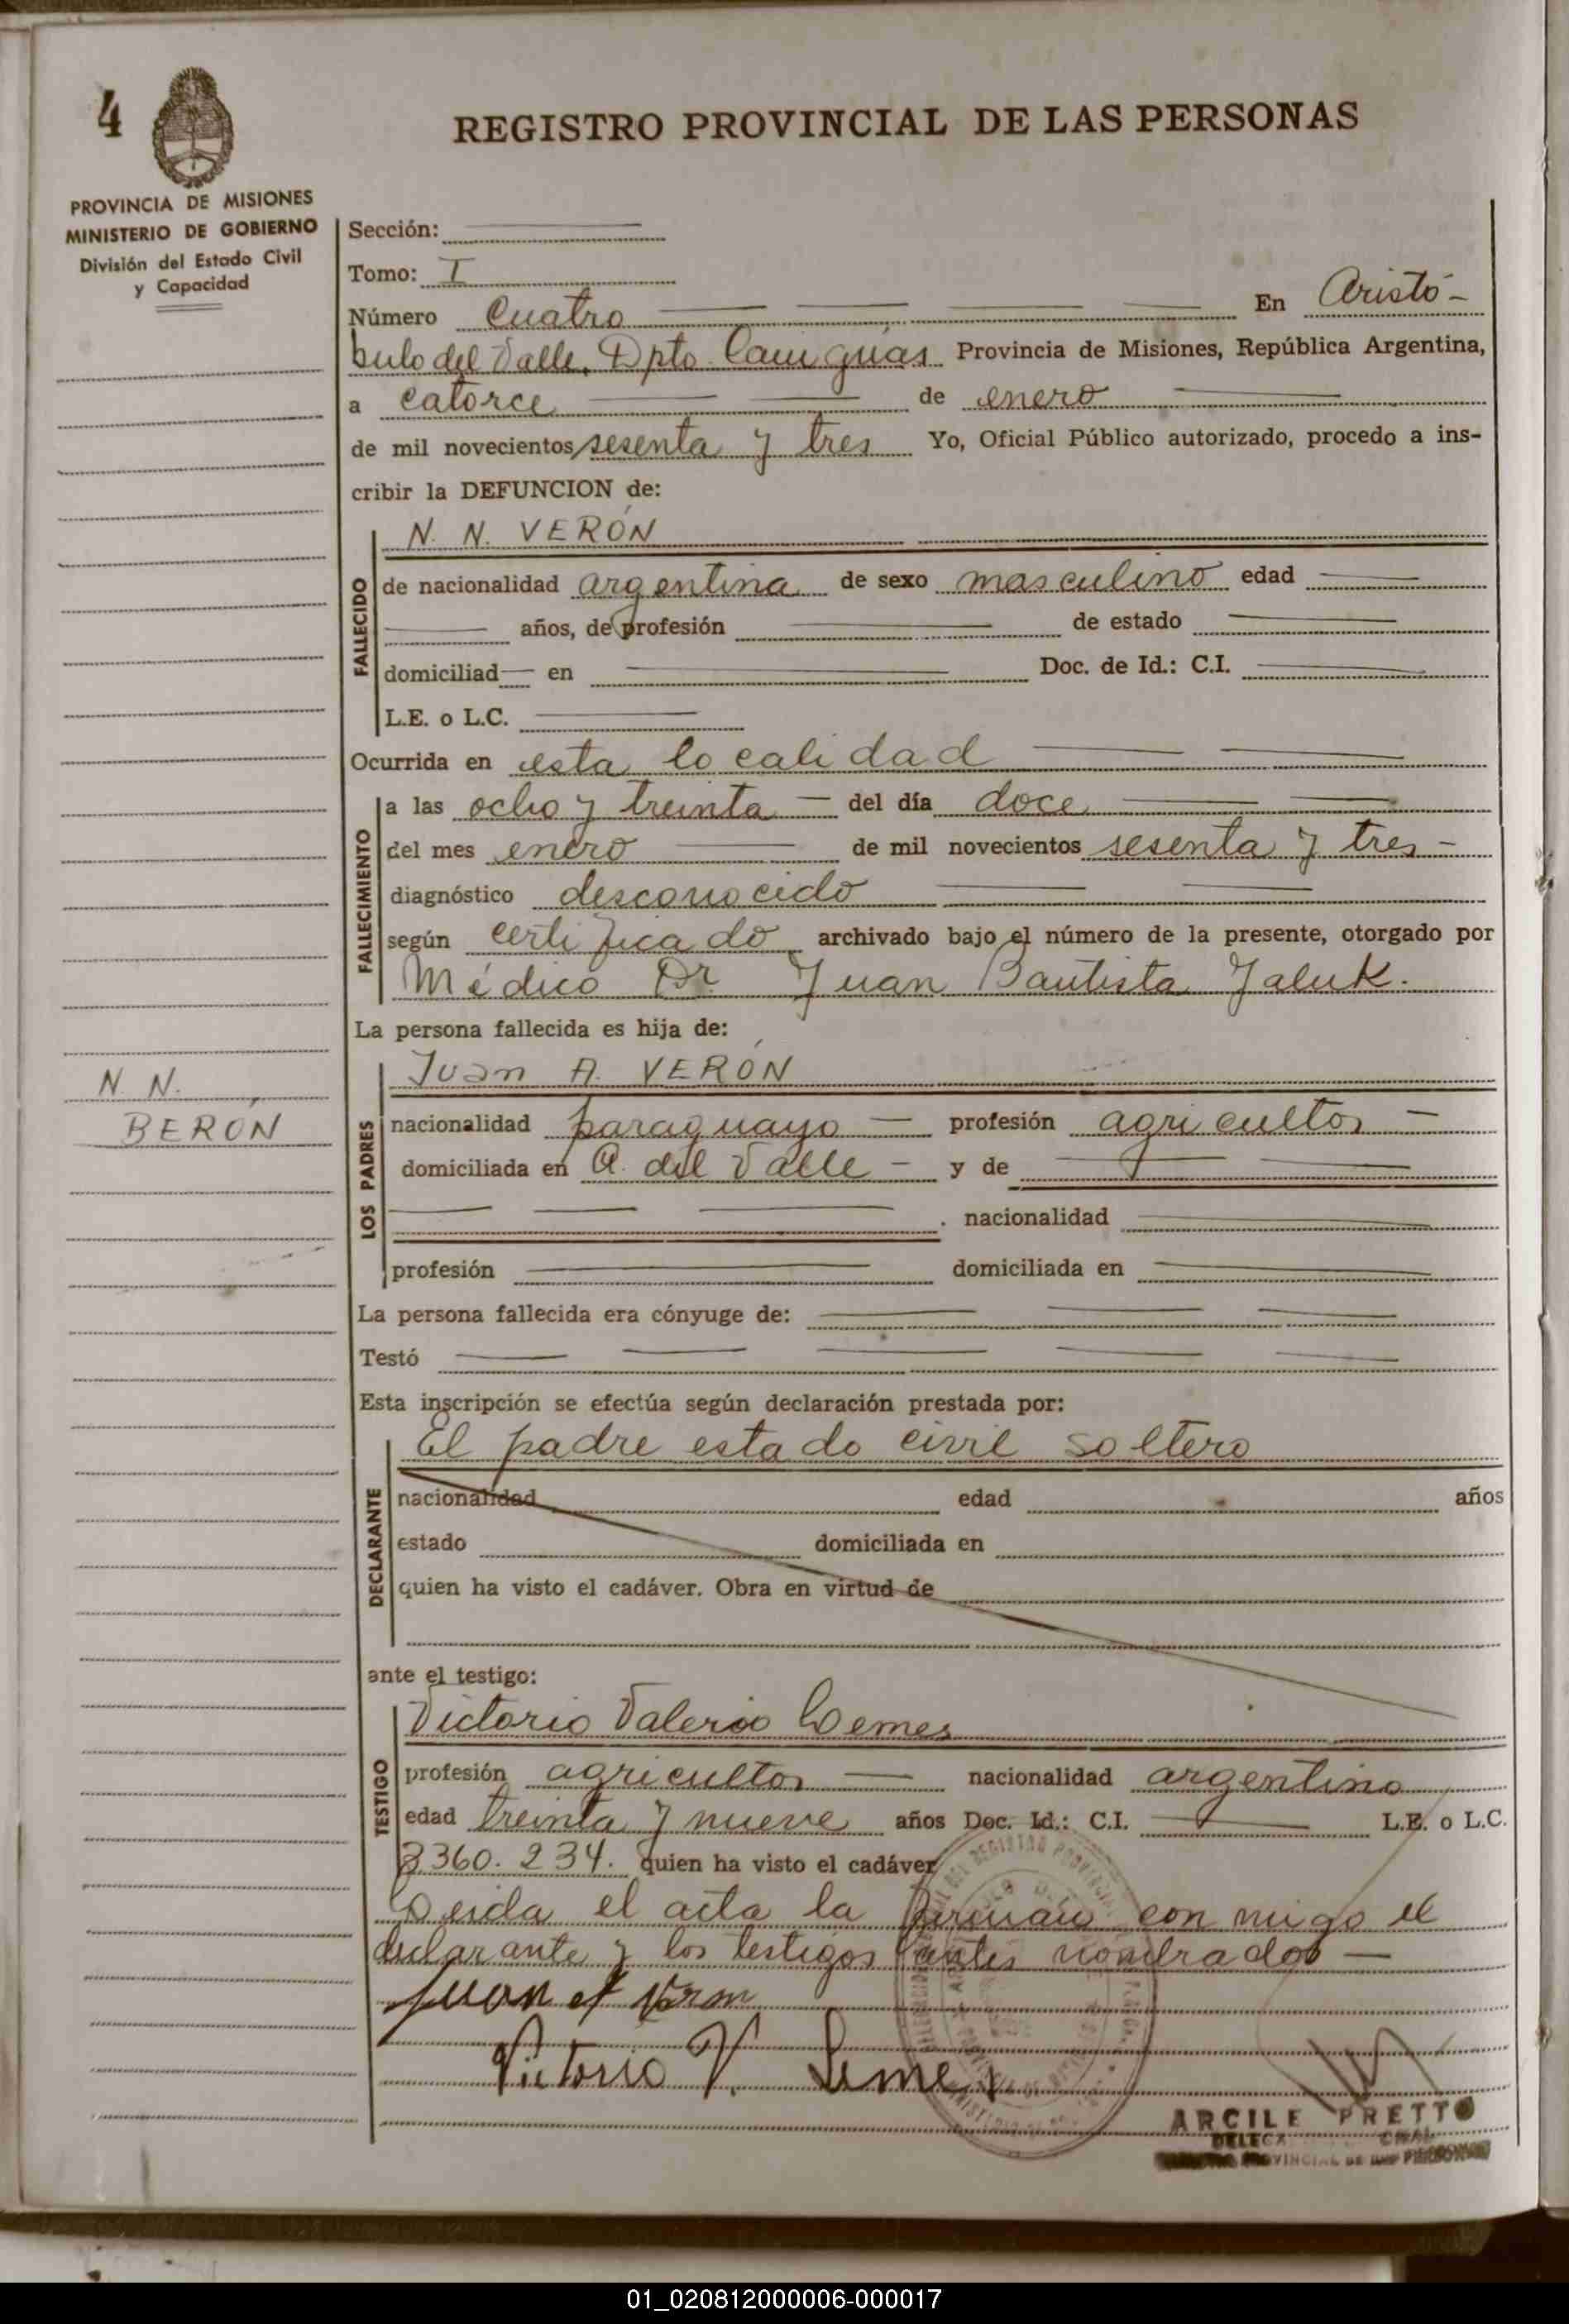 4
REGISTRO PROVINCIAL DE LAS PERSONAS
PROVINCIA DE MISIONES
MINISTERIO DE GOBIERNO
División del Estado Civil
y Capacidad
Sección:
Tomo: I
Número Cuatro En Aristó-
bulo del Valle. Dpto. Cainguás Provincia de Misiones, República Argentina,
a catorce de enero
de mil novecientos sesenta y tres Yo, Oficial Público autorizado, procedo a ins-
cribir la DEFUNCION de:
FALLECIDO
N. N. VERÓN
de nacionalidad argentina de sexo masculino edad
años, de profesión de estado
domiciliad en Doc. de Id.: C.I.
L.E. o L.C.
Ocurrida en esta localidad
FALLECIMIENTO
a las ocho y treinta del día doce
del mes enero de mil novecientos sesenta y tres
diagnóstico desconocido
según certificado archivado bajo el número de la presente, otorgado por
Médico Dr. Juan Bautista Jaluk.
La persona fallecida es hija de:
N. N.
BERÓN
LOS PADRES
Juan A. VERÓN
nacionalidad paraguayo profesión agricultor
domiciliada en A. del Valle y de
nacionalidad
profesión domiciliada en
La persona fallecida era cónyuge de:
Testó
Esta inscripción se efectúa según declaración prestada por:
DECLARANTE
El padre estado civil soltero
nacionalidad edad años
estado domiciliada en
quien ha visto el cadáver. Obra en virtud de
ante el testigo:
TESTIGO
Victorio Valerio Lemes
profesión agricultor nacionalidad argentino
edad treinta y nueve años Doc. Id.: C.I. L.E. o L.C.
3360.234. quien ha visto el cadáver
Leida el acta la firman con migo el
declarante y los testigos antes nombrados
Juan A Veron
Victorio V. Lemes
ARCILE PRETTO
01_020812000006-000017